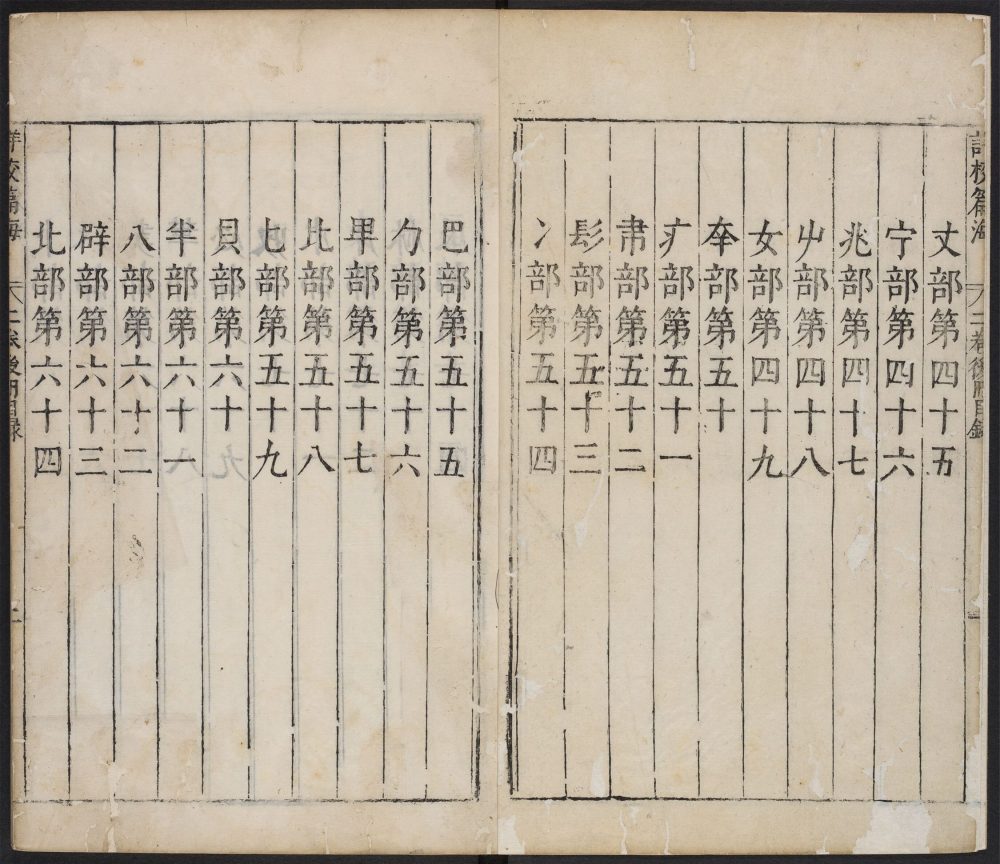 詳校篇海 二卷後冊目錄
丈部第四十五
宁部第四十六
兆部第四十七
屮部第四十八
女部第四十九
㚔部第五十
疒部第五十一
帇部第五十二
髟部第五十三
冫部第五十四
巴部第五十五
勹部第五十六
部第五十七
比部第五十八
匕部第五十九
貝部第六十
半部第六十一
八部第六十二
辟部第六十三
北部第六十四
詳校篇海 二卷後冊目錄